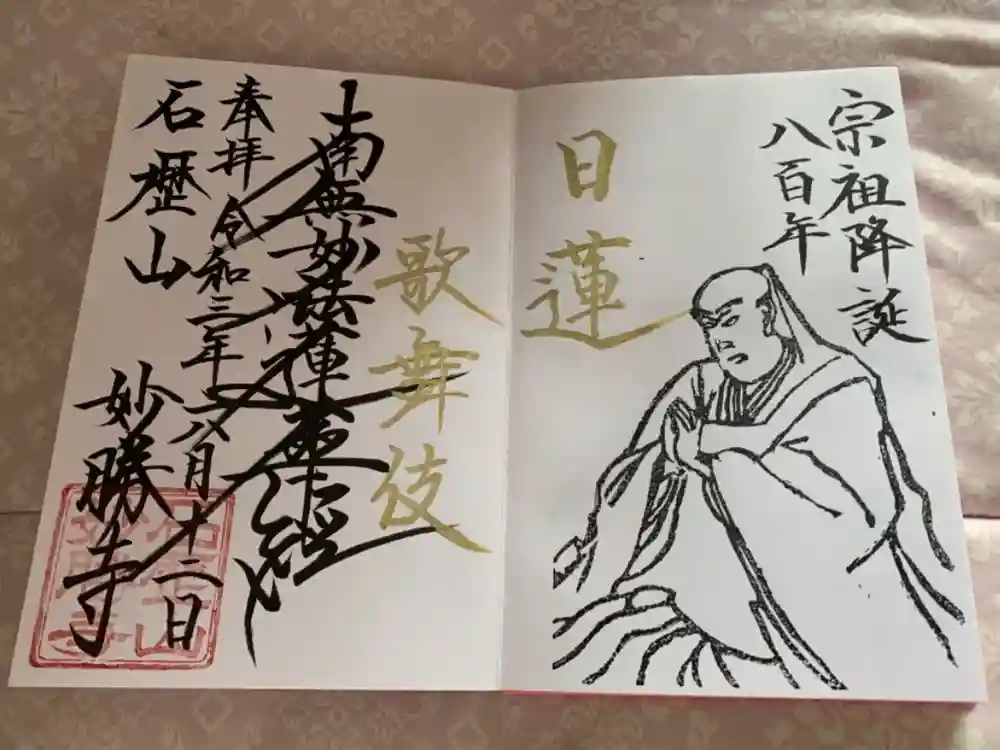 宗祖降誕
八百年
日蓮
歌舞伎
南無妙法蓮華経
奉拝 令和三年 八月十二日
石歴山 妙勝寺